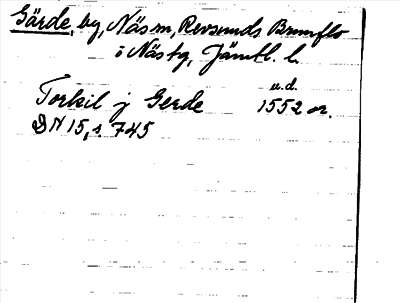 Gärde, by, Näs sn, Revsunds Brunflo
o Näs tg, Jämtl. l.
u.d.
Torkil j Gerde 1552 or.
DN 15, s. 745